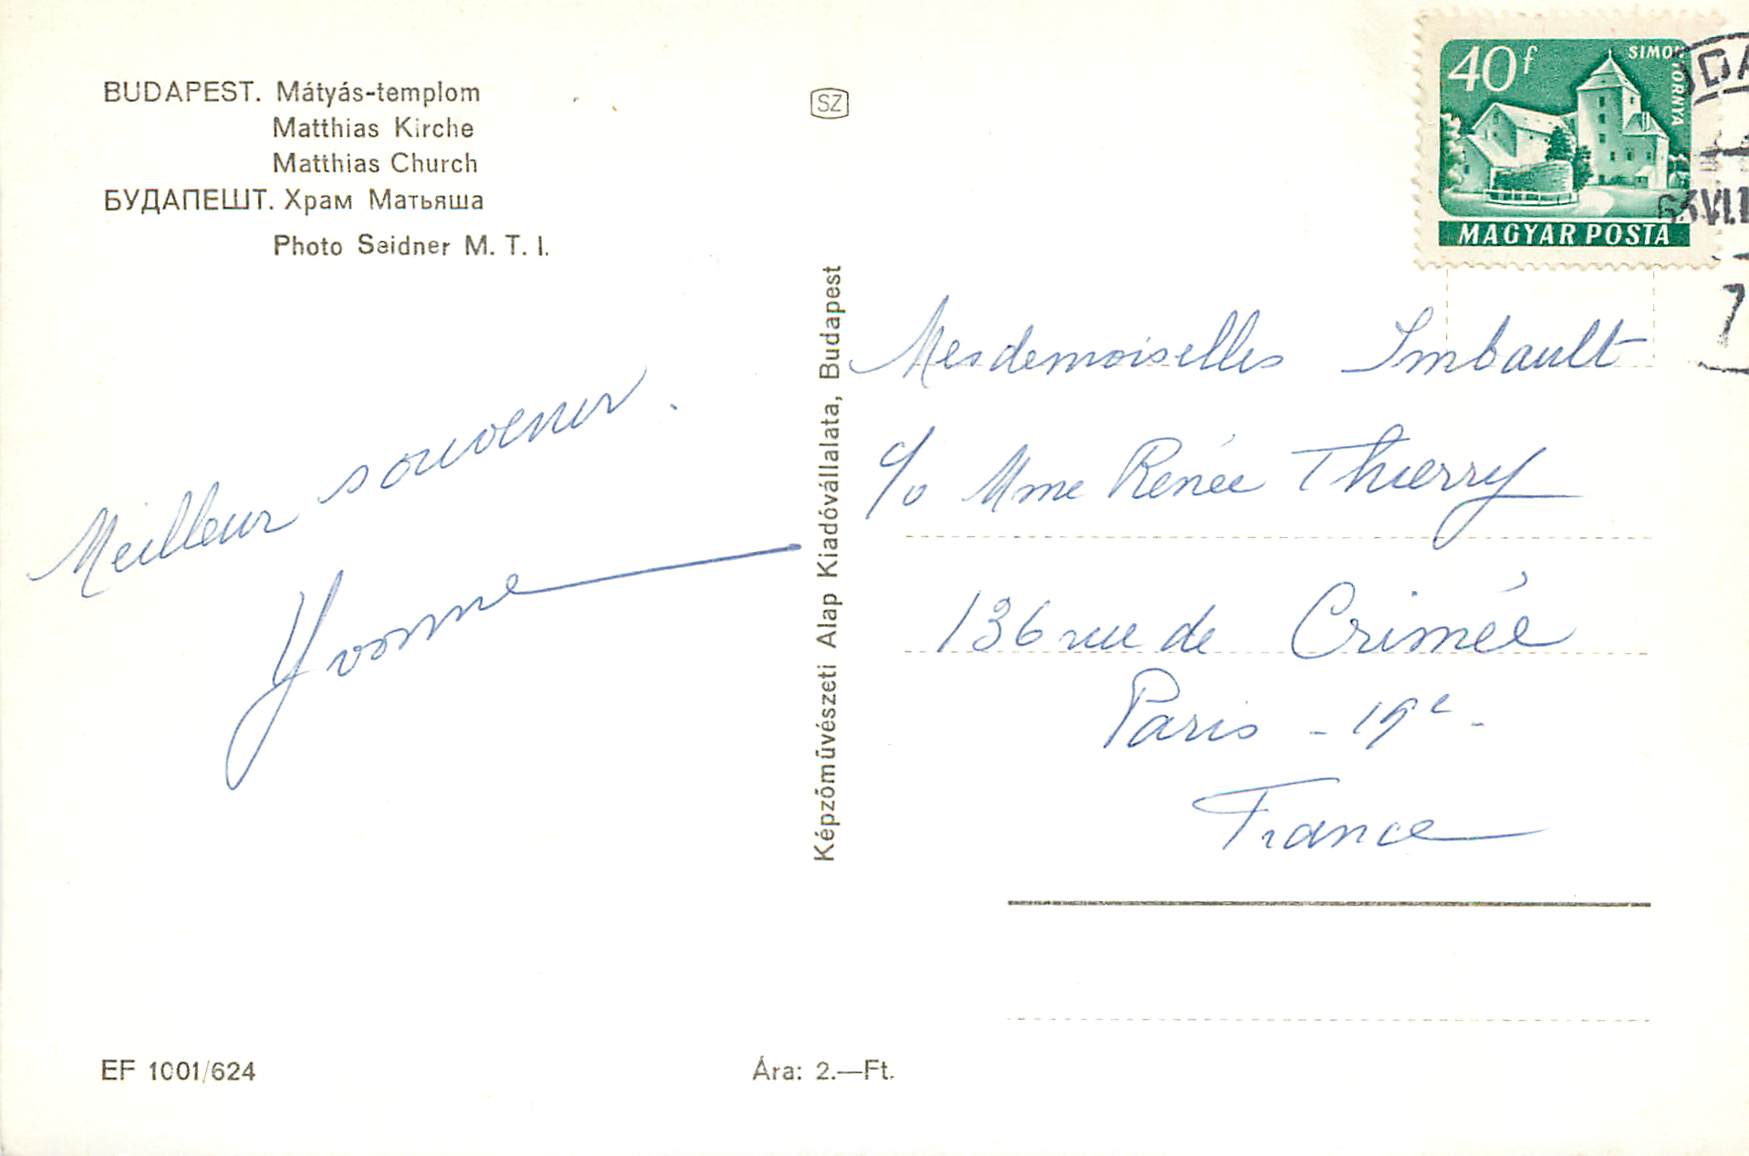 BUDAPEST. Mátyás-templom
Matthias Kirche
Matthias Church
БУДАПЕШТ. Храм Матьяша
Photo Seidner M. T. I.
SZ
40f
SIMONTORNYA
MAGYAR POSTA
63 VI. 1
7
Meilleur souvenir.
Yvonne
Képzőművészeti Alap Kiadóvállalata, Budapest
Mesdemoiselles Imbault
c/o Mme Renée Thierry
136 rue de Crimée
Paris - 19e -
France
EF 1001/624
Ára: 2.—Ft.